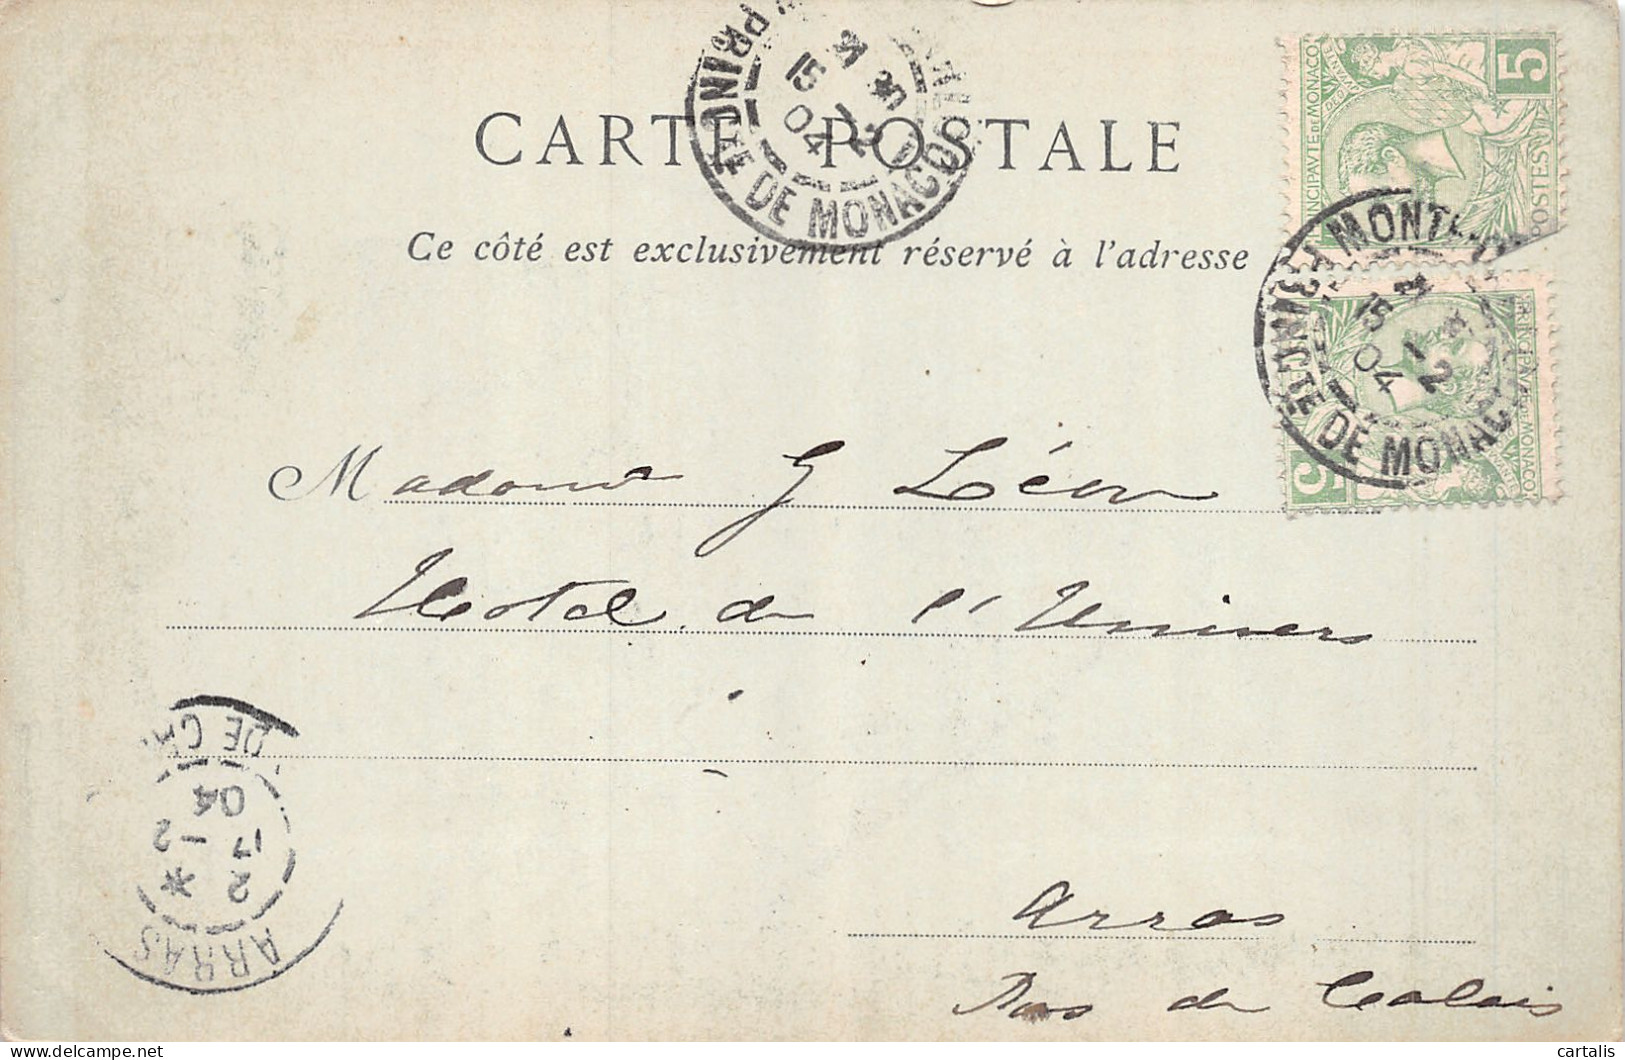 CARTE POSTALE
Ce côté est exclusivement réservé à l'adresse
PRINCTE DE MONACO
15
04
12
5
PRINCIPAUTÉ DE MONACO
POSTES
MONTE-CARLO
PRINCTE DE MONACO
15
04
12
5
PRINCIPAUTÉ DE MONACO
Madame G Léon
Hotel de l'Univers
Arras
Pas de Calais
ARRAS
04
12
2
cartalis
delcampe.net